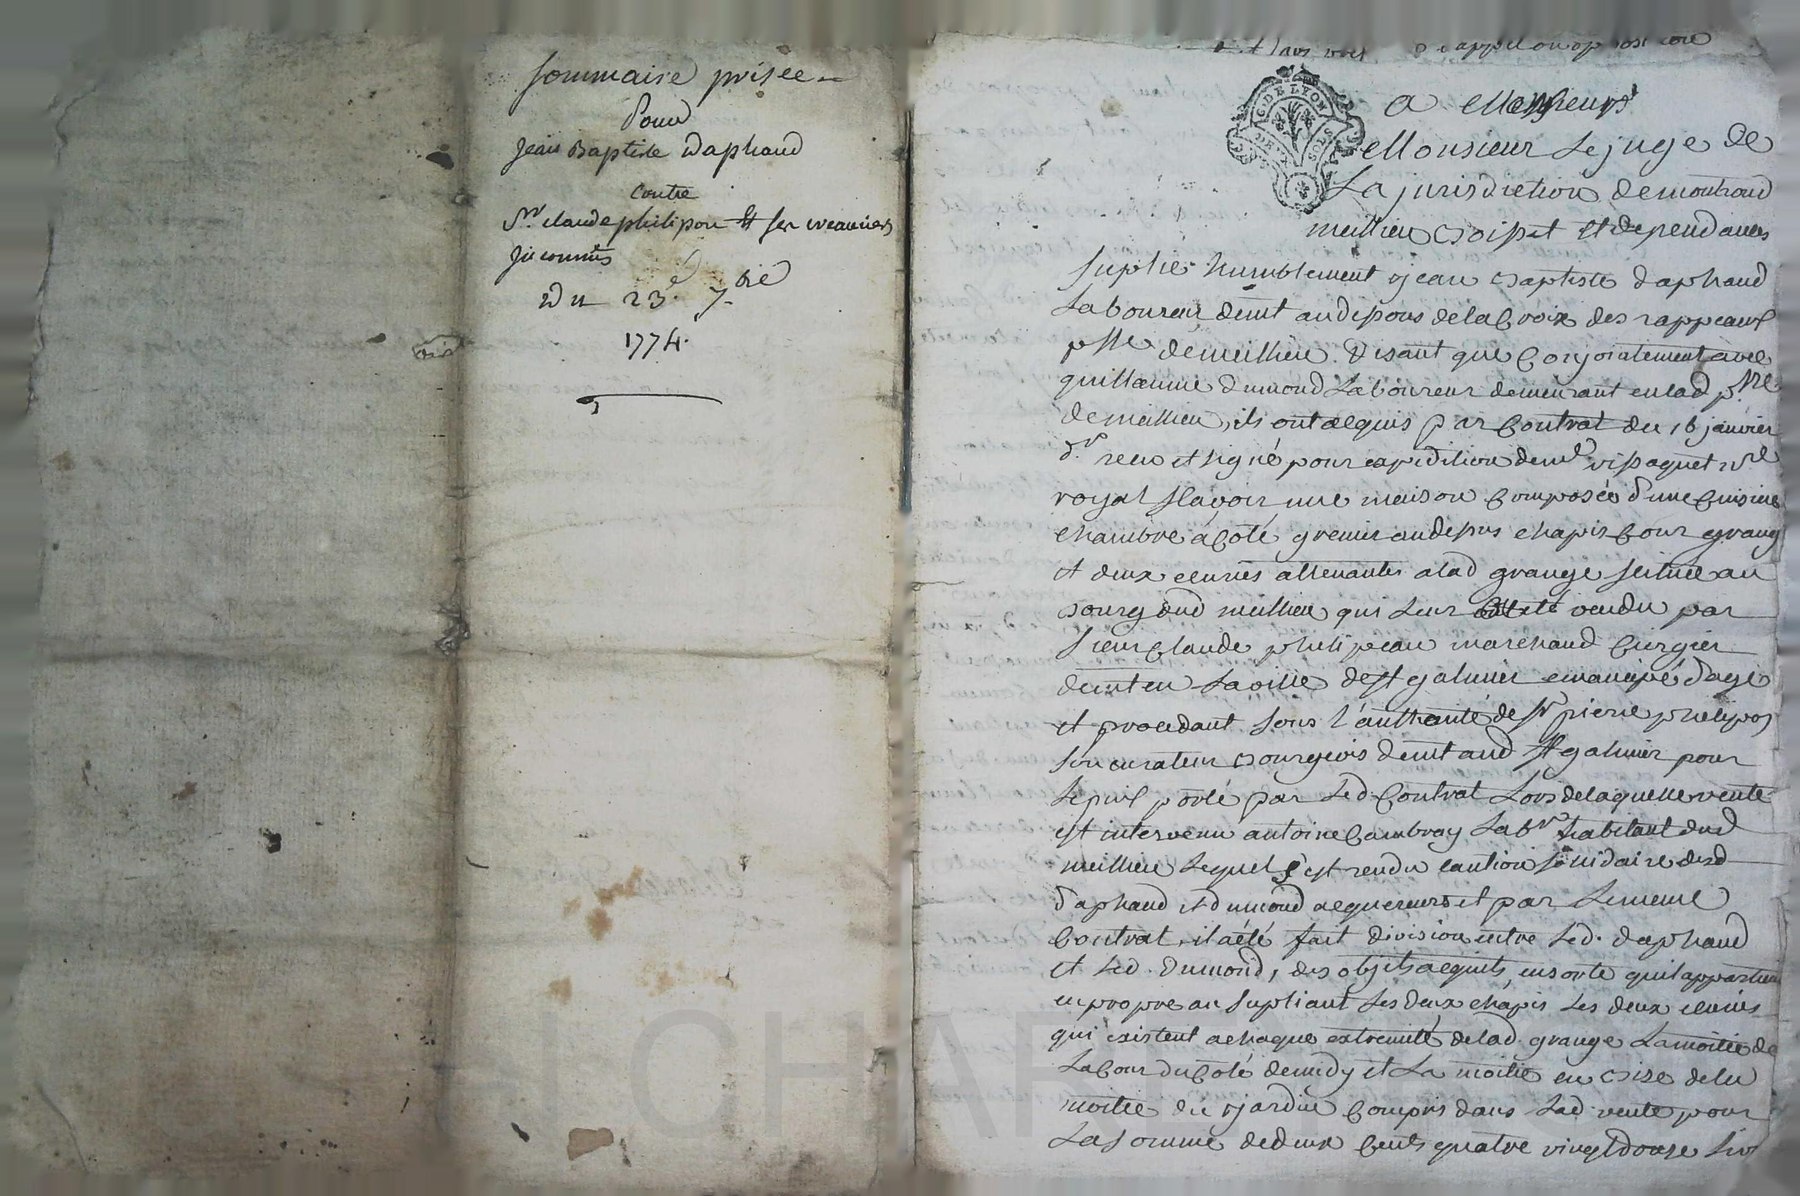 Sommaire prisée
Pour
Jean Baptiste Daphaud
Contre
Sr. claude philipon & ses creanciers
Inconnus
Du 23e 7bre
1774.
d'appel ou oposition
G. DE LYON
DEUX SOLS
a Messieurs
Monsieur Le juge de
La jurisdiction demontrond
meillieu Boisset et dependances
Suplie humblement jean Baptiste daphaud
Laboureur demt audessous delaCroix des rappeaux
psse demeillieu. Disant que Conjointement avec
guillaume dumond Laboureur demeurant enlad psse
demeillieu, ils ont acquis par Contrat du 16 janvier
dr recu et signé pour expedition deme vissaguet nre
royal Sçavoir une maison Composée d'une Cuisine
chambre àCoté grenier audessus chapis Cour grange
et deux ecuries attenantes alad grange scituée au
Bourg dud meillieu qui Leur vendu par
Sieur Claude philipeau marchand Cirgier
demt en Laville de St galmier emancipé d'age
et procedant sous l'authorité de Sr pierre philipon
son curateur Bourgeois demt aud St galmier pour
Leprix porté par Led Contrat Lors delaquelle vente
est intervenu antoine Cambray Labr habitant dud
meillieu Lequel s'est rendu caution solidaire desd
daphaud et dumond acquereurs et par Lememe
Contrat, il a eté fait division entre Led. daphaud
et Led. Dumond, des objets acquits, ensorte quil appartient
en propre au Supliant Les deux chapis Les deux ecuries
qui existent achaque extremité delad. grange Lamoitié de
LaCour duCoté demidy et La moitié en Bise dela
moitié du jardin Compris dans Lad. vente pour
Lasomme dedeux Cents quatre vingt douze Liv
LCHAR